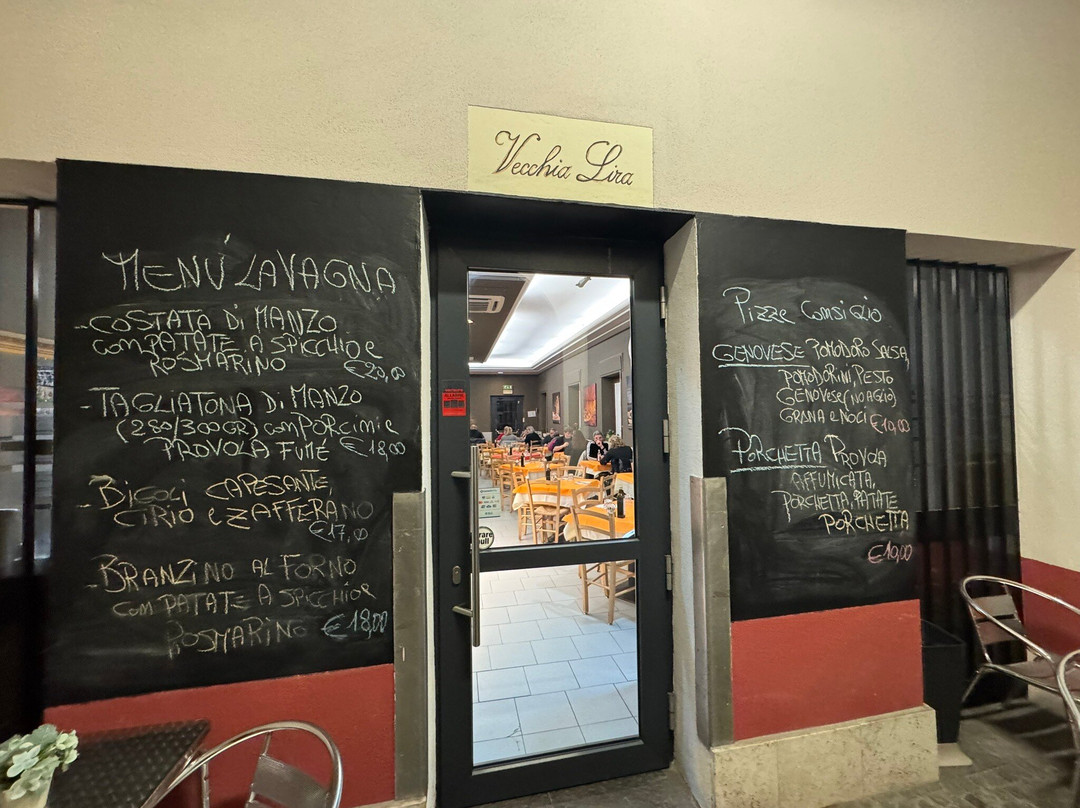 Vecchia Lira
MENÚ LAVAGNA
- COSTATA Di MANZO
con PATATE A SPICCHIO e
ROSMARINO €20,00
- TAGLIATONA Di MANZO
(280/300GR) con PORCINI e
PROVOLA FUMÉ €18,00
- BIGOLI CAPESANTE,
CIRIO e ZAFFERANO
€17,00
- BRANZINO AL FORNO
con PATATE A SPICCHIO e
ROSMARINO €18,00
Pizze Consiglio
GENOVESE POMODORO SALSA,
POMODORINI, PESTO
GENOVESE (NO AGLIO)
GRANA e NOCI €10,00
PORCHETTA PROVOLA
AFFUMICATA,
PORCHETTA, PATATE
PORCHETTA
€10,00